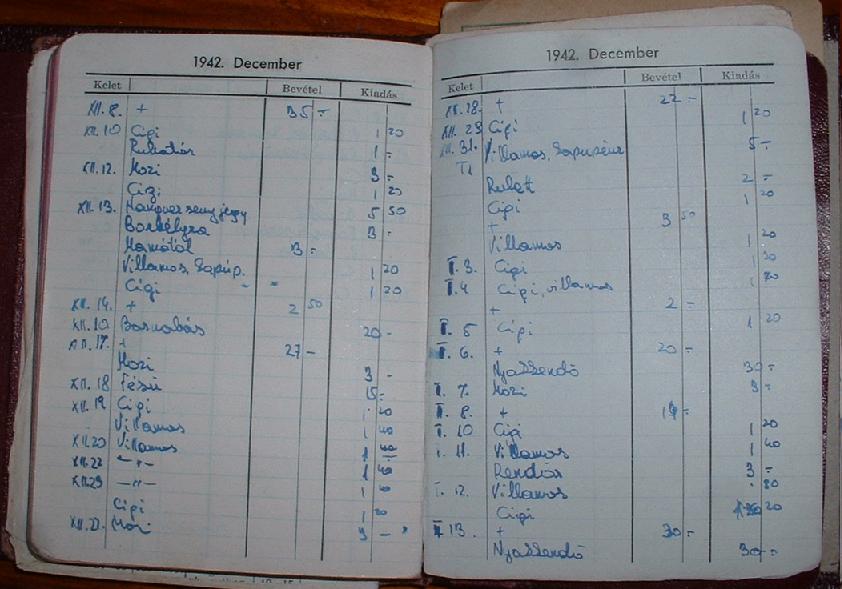 1942. December
Kelet Bevétel Kiadás
XII. 8. + 35 -
XII. 10 Cigi 1 20
Ruhatár 1 -
XII. 12. Mozi 3 -
Cigi 1 20
XII. 13. Hangversenyjegy 5 50
3 -
Mamától 3 -
Villamos, 1 20
Cigi 1 20
XII. 14. + 2 50
20 -
XII. 17. + 27 -
Mozi 3 -
XII. 18 Fésű 15 -
XII. 19 Cigi 1 20
Villamos 1 40
XII. 20 Villamos 1 40
XII. 22 - " - 1 40
XII. 23 - " - 1 40
Cigi 1 20
Mozi 3 -
1942. December
Kelet Bevétel Kiadás
XII. 28. + 22 -
XII. 29 Cigi 1 20
XII. 31. Villamos, 5 -
2 -
Cigi 1 20
+ 3 50
Villamos 1 20
I. 3. Cigi 1 20
I. 4 Cigi, villamos
+ 2 -
I. 5 Cigi 1 20
I. 6. + 20 -
Nyakkendő 30 -
I. 7. Mozi 3 -
I. 8. + 14 -
I. 10 Cigi 1 20
I. 11. Villamos 1 40
3 -
I. 12. Villamos
Cigi 20
I 13. + 30 -
Nyakkendő 30 -